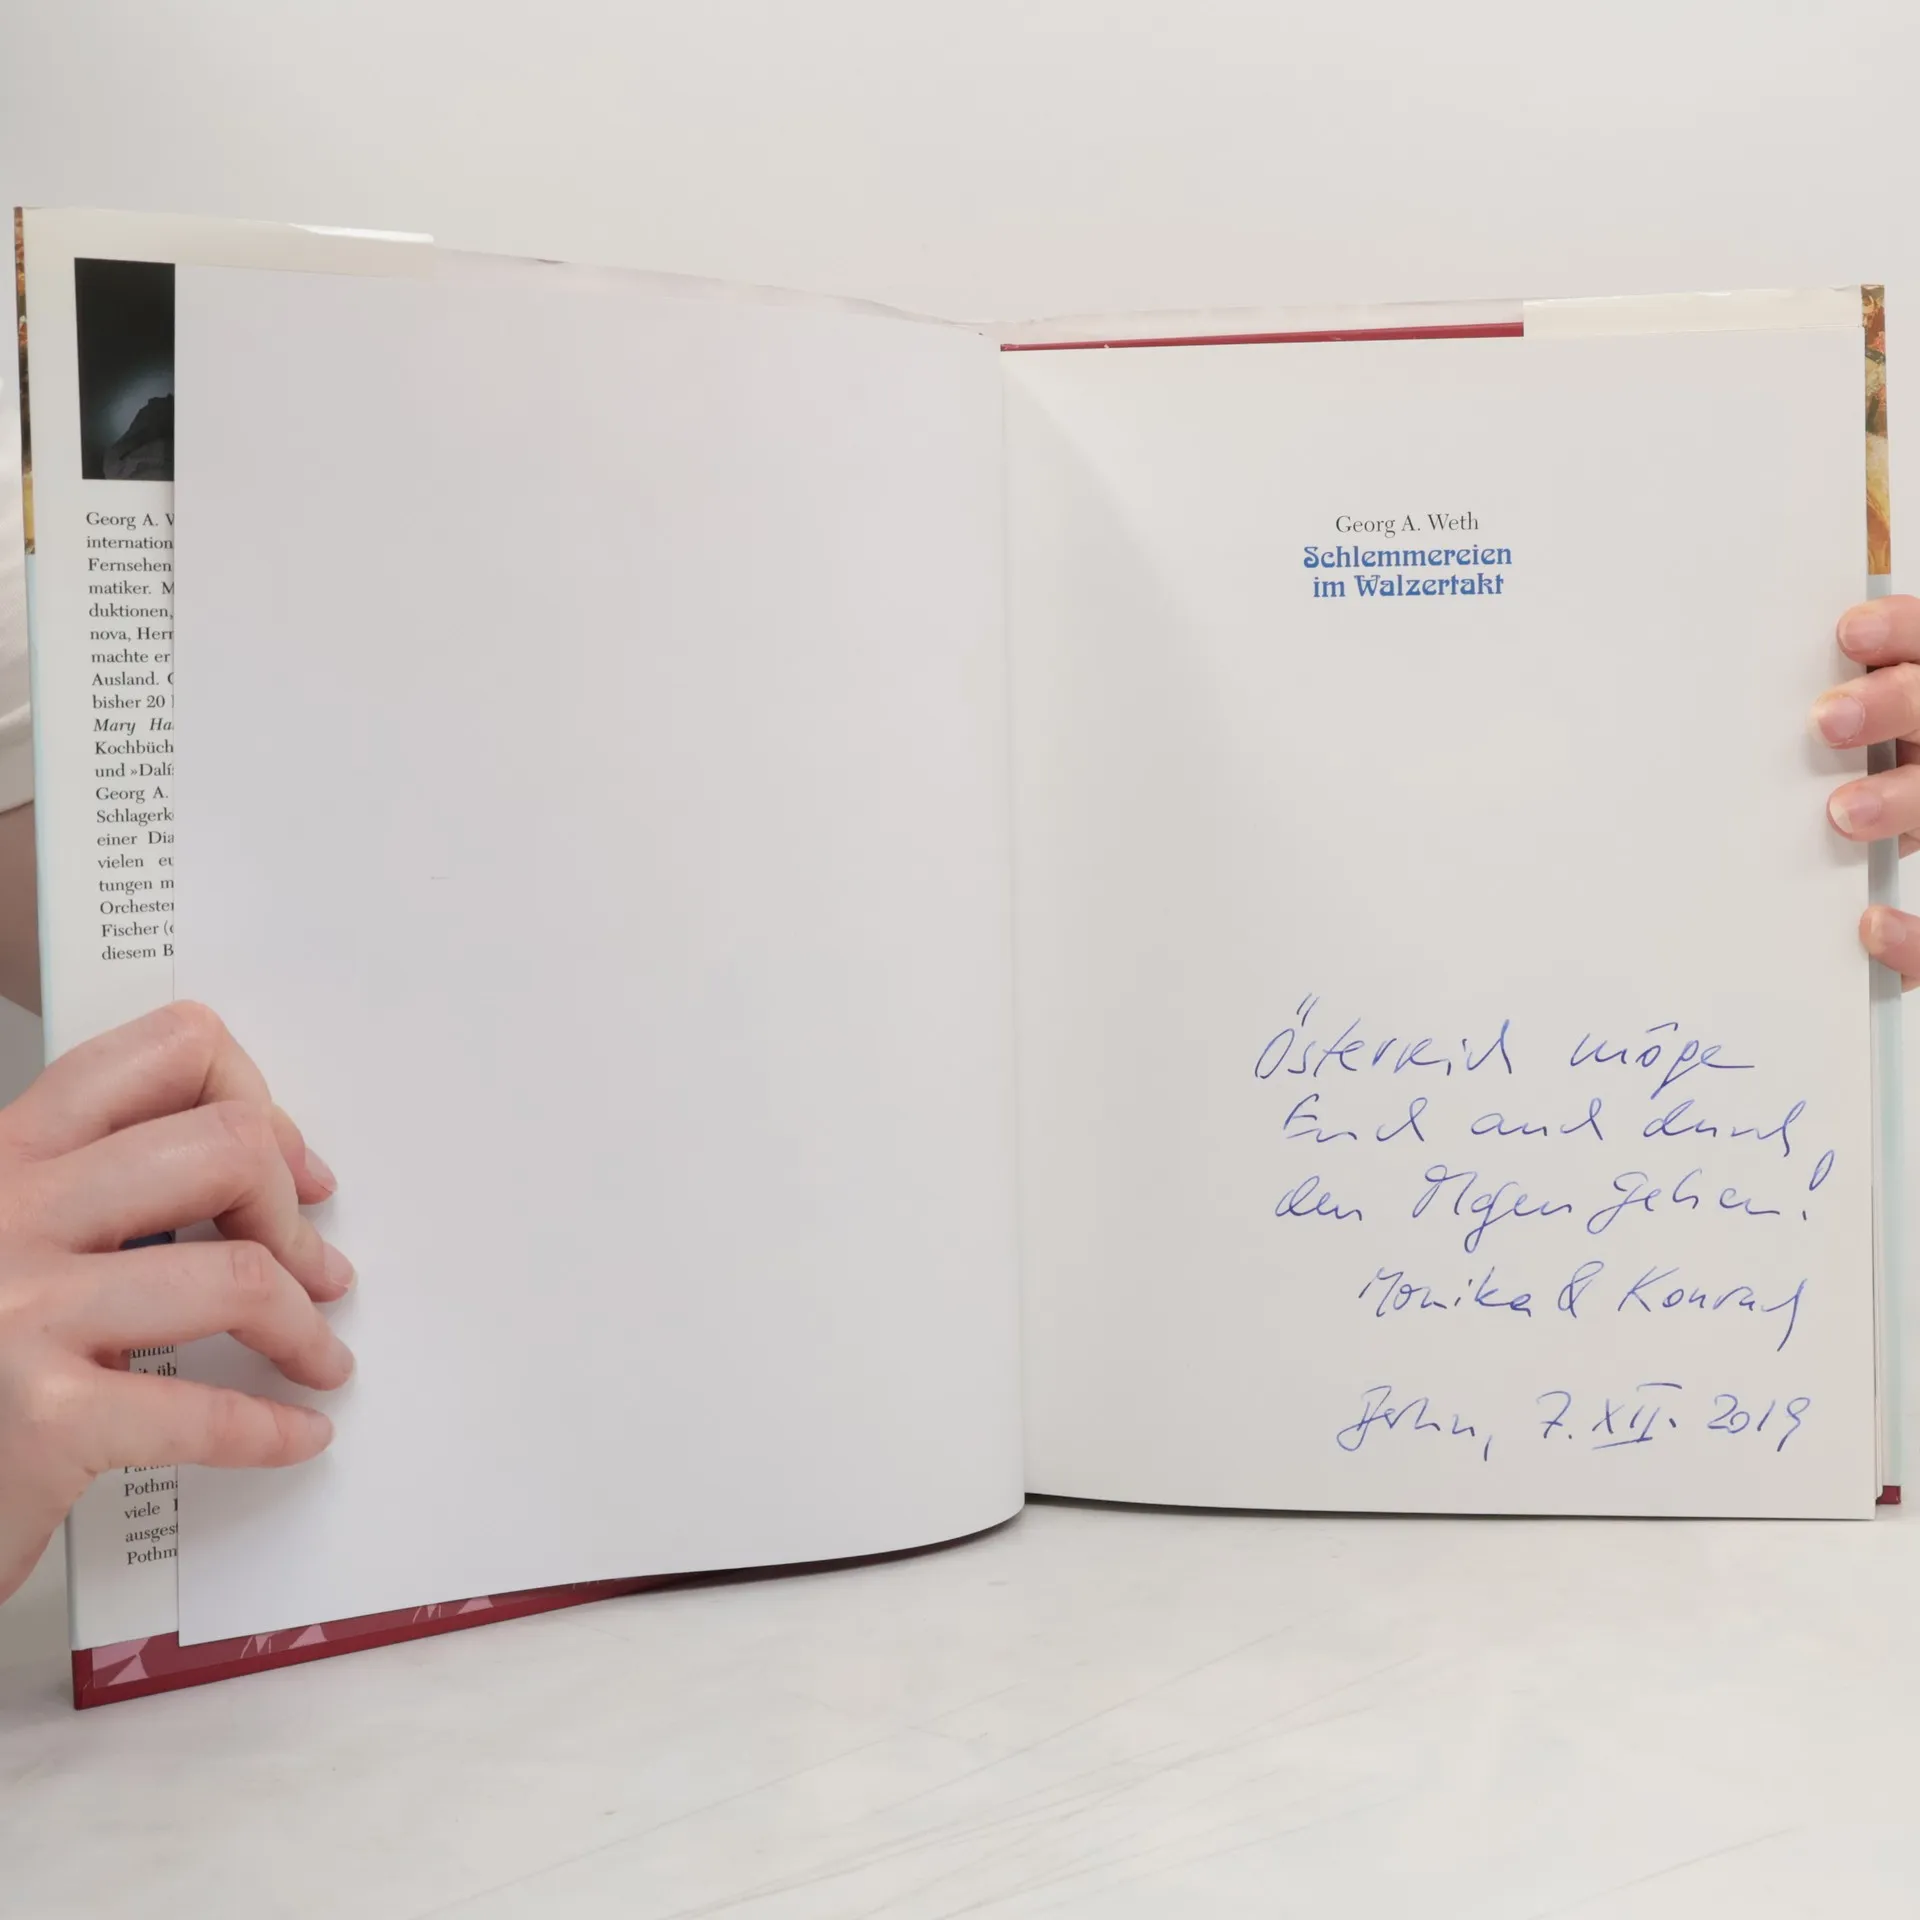 Georg A. W
internation
Fernsehen
matiker. M
duktionen,
nova, Herr
machte er
Ausland. G
bisher 20
Mary Ha
Kochbüch
und »Dalí
Georg A.
Schlagerk
einer Dia
vielen eu
tungen m
Orchester
Fischer (
diesem B
it üb
Pothm
viele
ausgest
Pothm
Georg A. Weth
Schlemmereien
im Walzertakt
Österreich möge
Euch auch durch
den Magen gehen!
Monika & Konrad
7. XII. 2019